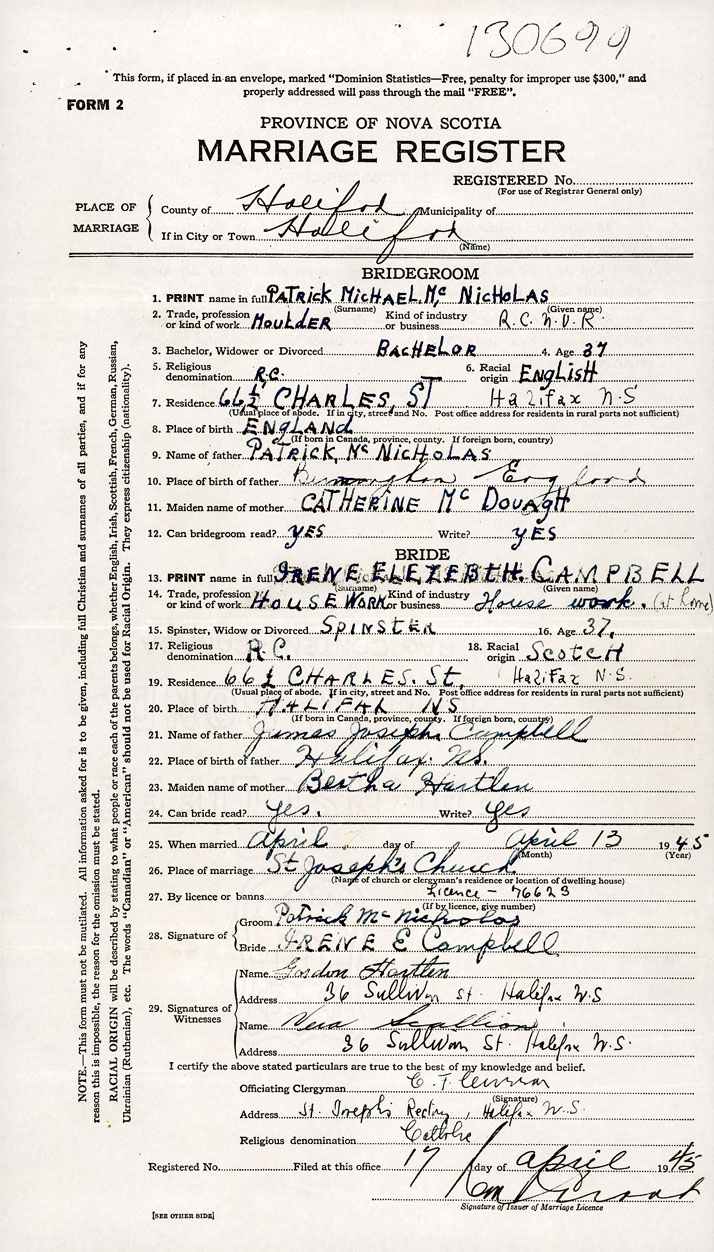 130699
This form, if placed in an envelope, marked "Dominion Statistics—Free, penalty for improper use $300," and
properly addressed will pass through the mail "FREE".
FORM 2
PROVINCE OF NOVA SCOTIA
MARRIAGE REGISTER
REGISTERED No.
(For use of Registrar General only)
PLACE OF MARRIAGE
County of Halifax Municipality of
If in City or Town Halifax
(Name)
BRIDEGROOM
1. PRINT name in full PATRICK MICHAEL Mc NICHOLAS
(Surname) (Given name)
2. Trade, profession or kind of work MOULDER Kind of industry or business R.C.N.V.R.
3. Bachelor, Widower or Divorced BACHELOR 4. Age 37
5. Religious denomination R.C. 6. Racial origin ENGLISH
7. Residence 66½ CHARLES, ST Halifax N.S
(Usual place of abode. If in city, street and No. Post office address for residents in rural parts not sufficient)
8. Place of birth ENGLAND
(If born in Canada, province, county. If foreign born, country)
9. Name of father PATRICK Mc NICHOLAS
10. Place of birth of father Birmingham England
11. Maiden name of mother CATHERINE Mc DOUAGH
12. Can bridegroom read? YES Write? YES
BRIDE
13. PRINT name in full IRENE ELEZEBETH. CAMPBELL
(Surname) (Given name)
14. Trade, profession or kind of work HOUSE WORK Kind of industry or business House work. (at home)
15. Spinster, Widow or Divorced SPINSTER 16. Age 37.
17. Religious denomination R.C. 18. Racial origin SCOTCH
19. Residence 66½ CHARLES. St. Halifax N.S.
(Usual place of abode. If in city, street and No. Post office address for residents in rural parts not sufficient)
20. Place of birth HALIFAX NS
(If born in Canada, province, county. If foreign born, country)
21. Name of father James Joseph Campbell
22. Place of birth of father Halifax. NS.
23. Maiden name of mother Bertha Hartlen
24. Can bride read? yes. Write? yes
25. When married April day of April 13 1945
(Month) (Year)
26. Place of marriage St Joseph's Church
(Name of church or clergyman's residence or location of dwelling house)
27. By licence or banns Licence - 76623
(If by licence, give number)
28. Signature of
Groom Patrick Mc Nicholas
Bride IRENE E Campbell
29. Signatures of Witnesses
Name Gordon Hartlen
Address 36 Sullivan St. Halifax N.S
Name Vera Scallion
Address 36 Sullivan St. Halifax N.S.
I certify the above stated particulars are true to the best of my knowledge and belief.
Officiating Clergyman C. F.
(Signature)
Address St. Joseph's Rectory, Halifax N.S.
Religious denomination Catholic
Registered No. Filed at this office 17 day of April 1945
Signature of Issuer of Marriage Licence
[SEE OTHER SIDE]
NOTE.—This form must not be mutilated. All information asked for is to be given, including full Christian and surnames of all parties, and if for any
reason this is impossible, the reason for the omission must be stated.
RACIAL ORIGIN will be described by stating to what people or race each of the parents belongs, whether English, Irish, Scottish, French, German, Russian,
Ukrainian (Ruthenian), etc. The words "Canadian" or "American" should not be used for Racial Origin. They express citizenship (nationality).